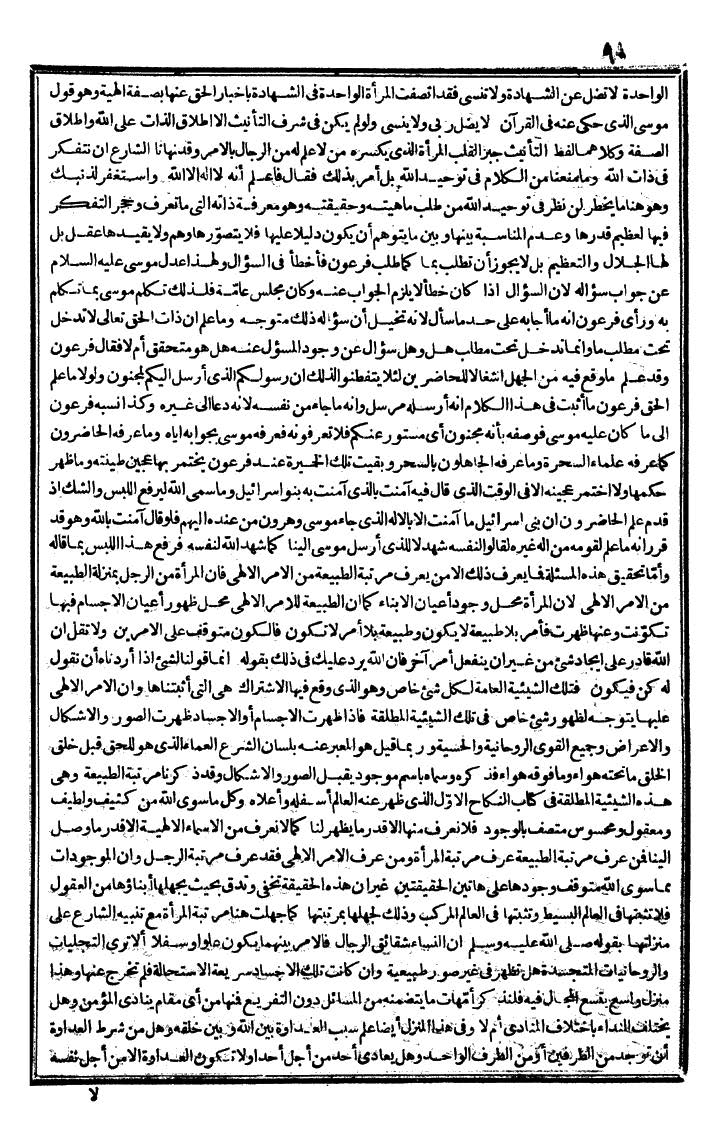 ٩٨
الواحدة لا تضل عن الشهادة ولا تنسى فقد اتصفت المرأة الواحدة فى الشهادة باخبار الحق عنها بصفة الهية وهو قول
موسى الذى حكى عنه فى القرآن لا يضل ربى ولا ينسى ولو لم يكن فى شرف التأنيث الا اطلاق الذات على الله واطلاق
الصفة وكلاهما لفظ التأنيث جبر القلب المرأة الذى يكسره من لا علم له من الرجال بالامر وقد نهانا الشارع ان نتفكر
فى ذات الله وما منعنا من الكلام فى توحيد الله بل أمر بذلك فقال فاعلم أنه لا اله الا الله واستغفر لذنبك
وهو هنا ما يخطر لمن نظر فى توحيد الله من طلب ماهيته وحقيقته وهو معرفة ذاته التى ما تعرف وحجر التفكر
فيها لعظيم قدرها وعدم المناسبة بينها وبين ما يتوهم أن يكون دليلا عليها فلا يتصورها وهم ولا يقيدها عقل بل
لها الجلال والتعظيم بل لا يجوز أن تطلب بما كما طلب فرعون فأخطأ فى السؤال ولهذا عدل موسى عليه السلام
عن جواب سؤاله لان السؤال اذا كان خطأ لا يلزم الجواب عنه وكان مجلس عامّة فلذلك تكلم موسى بما تكلم
به ورأى فرعون انه ما أجابه على حد ما سأل لانه تخيل أن سؤاله ذلك متوجه وما علم ان ذات الحق تعالى لا تدخل
تحت مطلب ما وانما تدخل تحت مطلب هل وهل سؤال عن وجود المسؤل عنه هل هو متحقق أم لا فقال فرعون
وقد علم ما وقع فيه من الجهل اشغالا للحاضرين لئلا يتفطنوا لذلك ان رسولكم الذى أرسل اليكم لمجنون ولولا ما علم
الحق فرعون ما أثبت فى هذا الكلام انه أرسله مرسل وانه ما جاء من نفسه لانه دعا الى غيره وكذا نسبه فرعون
الى ما كان عليه موسى فوصفه بأنه مجنون أى مستور عنكم فلا تعرفونه فعرفه موسى بجوابه اياه وما عرفه الحاضرون
كما عرفه علماء السحرة وما عرفه الجاهلون بالسحر وبقيت تلك الخميرة عند فرعون يختمر بها عجين طينته وما ظهر
حكمها ولا اختمر عجينه الا فى الوقت الذى قال فيه آمنت بالذى آمنت به بنو اسرائيل وما سمى الله ليرفع اللبس والشك اذ
قد علم الحاضرون ان بنى اسرائيل ما آمنت الا بالاله الذى جاء موسى وهرون من عنده اليهم فلو قال آمنت بالله وهو قد
قرر انه ما علم لقومه من اله غيره لقالوا لنفسه شهد لا للذى أرسل موسى الينا كما شهد الله لنفسه فرفع هذا اللبس بما قاله
وأمّا تحقيق هذه المسئلة فما يعرف ذلك الا من يعرف مرتبة الطبيعة من الامر الالهى فان المرأة من الرجل بمنزلة الطبيعة
من الامر الالهى لان المرأة محل وجود أعيان الابناء كما ان الطبيعة للامر الالهى محل ظهور أعيان الاجسام فيها
تكوّنت وعنها ظهرت فأمر بلا طبيعة لا يكون وطبيعة بلا أمر لا تكون فالكون متوقف على الامرين ولا تقل ان
الله قادر على ايجاد شئ من غير ان ينفعل أمر آخر فان الله يرد عليك فى ذلك بقوله انما قولنا لشئ اذا أردناه أن نقول
له كن فيكون فتلك الشيئية العامة لكل شئ خاص وهو الذى وقع فيها الاشتراك هى التى أثبتناها وان الامر الالهى
عليها يتوجه لظهور شئ خاص فى تلك الشيئية المطلقة فاذا ظهرت الاجسام أو الاجساد ظهرت الصور والاشكال
والاعراض وجميع القوى الروحانية والحسية وربما قيل هو المعبر عنه بلسان الشرع العماء الذى هو للحق قبل خلق
الخلق ما تحته هواء وما فوقه هواء فذكره وسماه باسم موجود يقبل الصور والاشكال وقد ذكرنا مرتبة الطبيعة وهى
هذه الشيئية المطلقة فى كتاب النكاح الاوّل الذى ظهر عنه العالم أسفله وأعلاه وكل ما سوى الله من كثيف ولطيف
ومعقول ومحسوس متصف بالوجود فلا نعرف منها الا قدر ما يظهر لنا كما لا نعرف من الاسماء الالهية الا قدر ما وصل
الينا فمن عرف مرتبة الطبيعة عرف مرتبة المرأة ومن عرف الامر الالهى فقد عرف مرتبة الرجل وان الموجودات
مما سوى الله متوقف وجودها على هاتين الحقيقتين غير ان هذه الحقيقة تخفى وتدق بحيث يجهلها أبناؤها من العقول
فلا تثبتها فى العالم البسيط وتثبتها فى العالم المركب وذلك لجهلها بمرتبتها كما جهلت هنا مرتبة المرأة مع تنبيه الشارع على
منزلتها بقوله صلى الله عليه وسلم ان النساء شقائق الرجال فالامر بينهما يكون علوا وسفلا ألا ترى التجليات
والروحانيات المتجسدة هل تظهر فى غير صور طبيعية وان كانت تلك الاجساد سريعة الاستحالة فلم تخرج عنها وهذا
منزل واسع يتسع المجال فيه فلنذكر أمّهات ما يتضمنه من المسائل دون التفريع فمنها من أى مقام ينادى المؤمن وهل
يختلف النداء باختلاف المنادى أم لا وفى هذا المنزل أيضا علم سبب العداوة بين الله وبين خلقه وهل من شرط العداوة
أن توجد من الطرفين أو من الطرف الواحد وهل يعادى أحد من أجل أحد أو لا تكون العداوة الا من أجل نفسه
لا